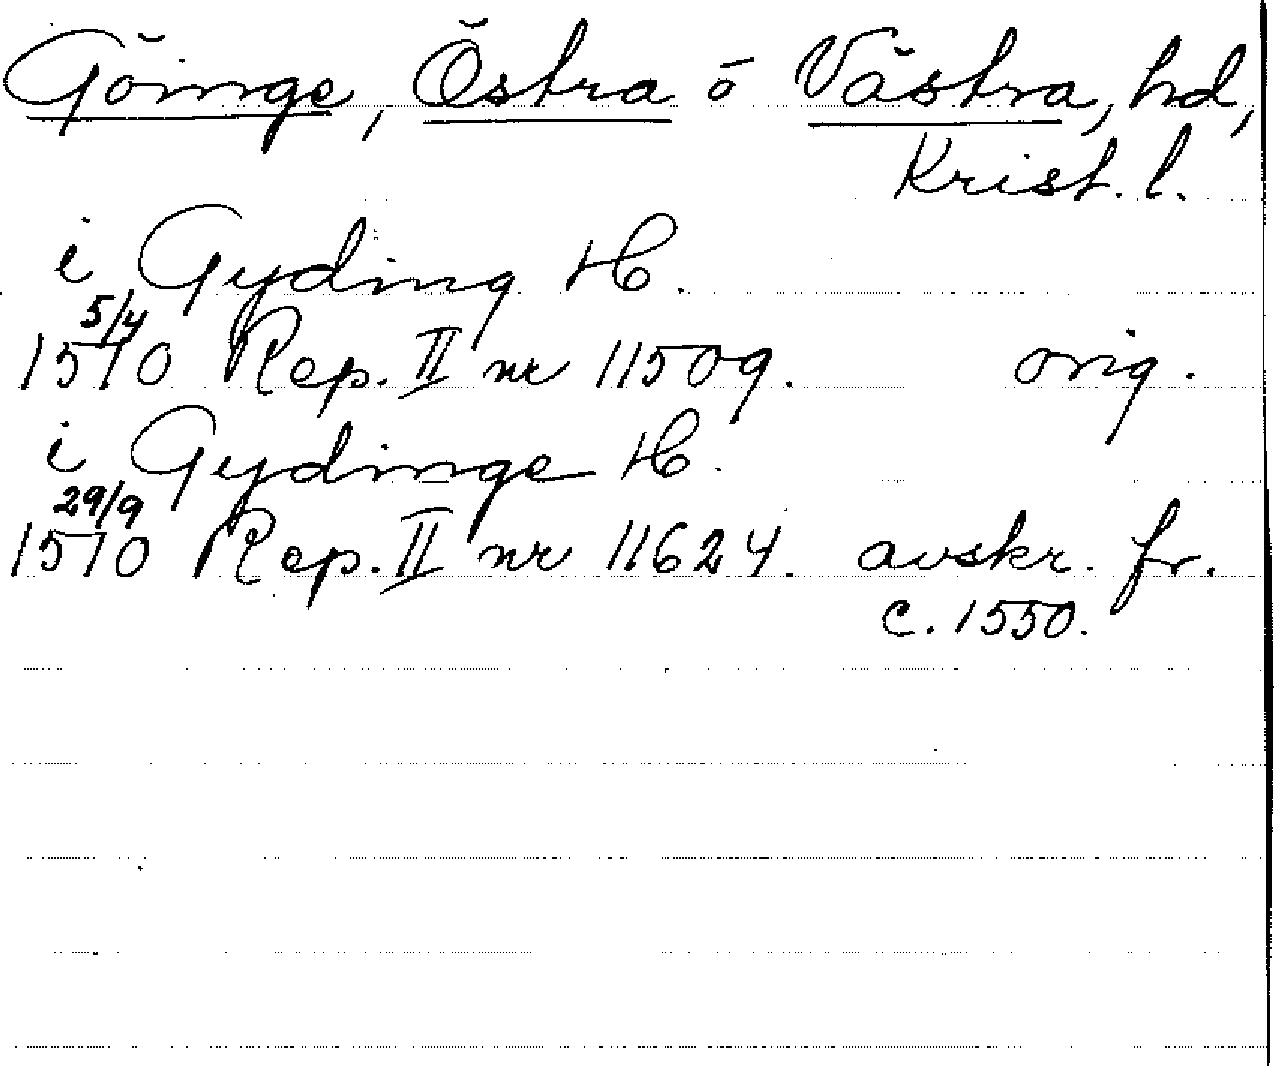 Göinge, Östra o Västra, hd,
Krist. l.
i Gyding H.
5/4
1510 Rep. II nr 11509. orig.
i Gydinge H.
29/9
1510 Rep. II nr 11624. avskr. fr.
c. 1550.